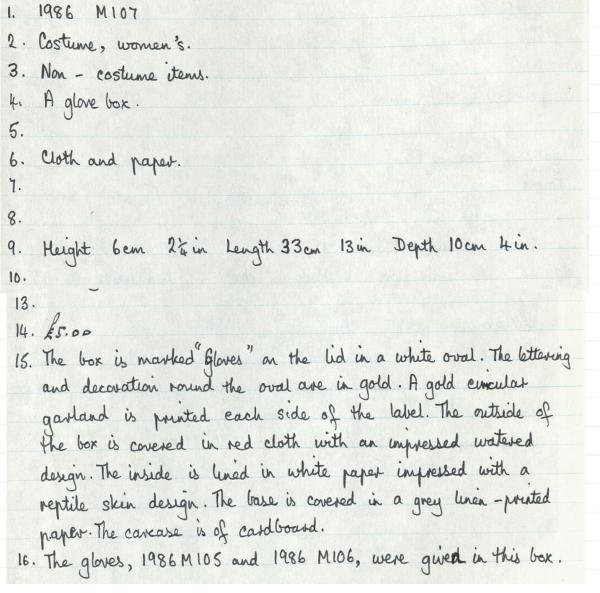 1. 1986 M107
2. Costume, women's.
3. Non - costume items.
4. A glove box.
5.
6. Cloth and paper.
7.
8.
9. Height 6cm 2¼in Length 33cm 13in Depth 10cm 4in.
10.
13.
14. £5.00
15. The box is marked "Gloves" on the lid in a white oval. The lettering
and decoration round the oval are in gold. A gold circular
garland is printed each side of the label. The outside of
the box is covered in red cloth with an impressed watered
design. The inside is lined in white paper impressed with a
reptile skin design. The base is covered in a grey linen-printed
paper. The carcase is of cardboard.
16. The gloves, 1986 M105 and 1986 M106, were given in this box.